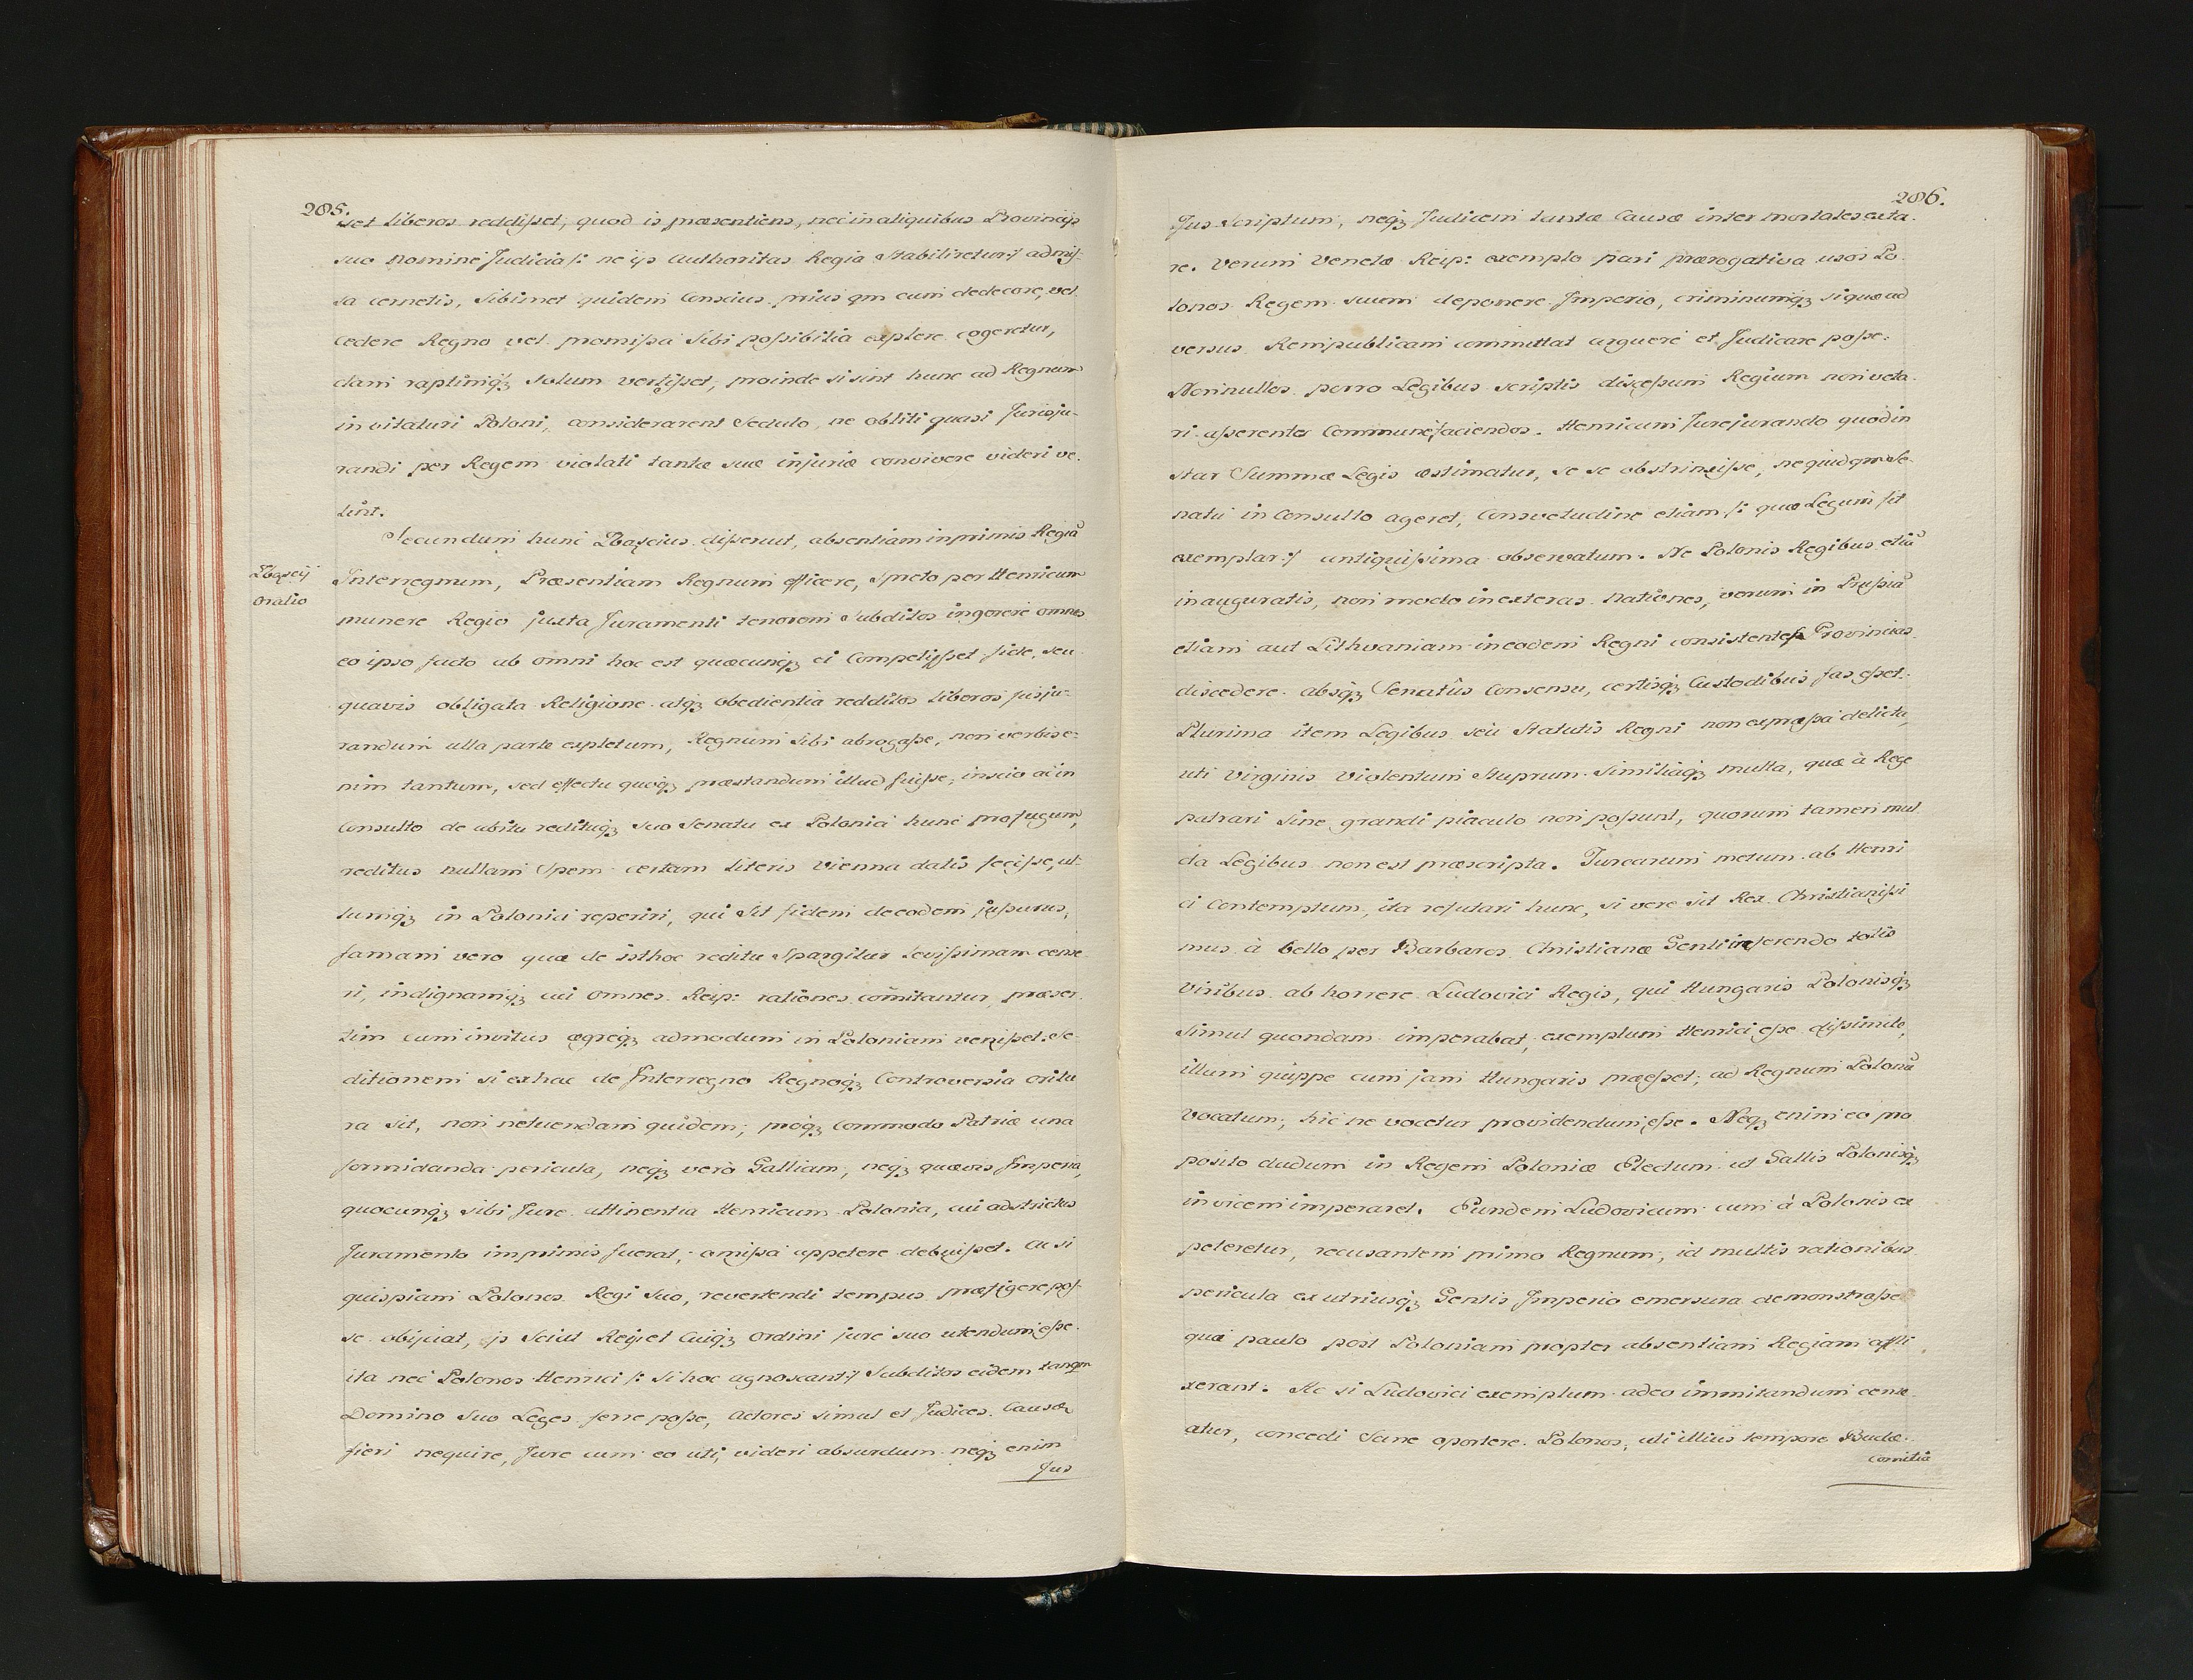 285.
set liberos reddisset, quod is præsentiens, nec in aliquibus Provincijs
suo nomine Judicia /: ne ijs authoritas Regia stabiliretur :/ admis-
sa cernetis, sibimet quidem Conscius prius qm cum dedecore, vel
cedere Regno vel promissa sibi possibilia explere cogeretur,
clam raptimq; solum vertisset; proinde si sint hunc ad Regnum
invitaturi Poloni, considerarent sedulo, ne obliti quasi Jurisju-
randi per Regem violati tantæ suæ injuriæ convivere videri ve-
lint.
Secundum hunc Zbąscius disseruit, absentiam inprimis Regiã
Zbąscij
Oratio
Interregnum, Præsentiam Regnum efficere, spreto per Henricum
munere Regio juxta Juramenti tenorem subditos ingerere omnes
eo ipso facto ab omni hoc est quæcunq; ei Competijsset fide, seu
quavis obligata Religione atq; obedientia redditos liberos jusju-
randum ulla parte expletum, Regnum sibi abrogasse, non verbis e-
nim tantum, sed effectu quoq; præstandum illud fuisse, inscio ac in
Consulto de abitu redituq; suo Senatu ex Polonia hunc profugum,
reditus nullam Spem certam literis Vienna datis fecisse, ul-
lumq; in Polonia reperiri, qui sit fidem de eodem jussurus,
famam vero quæ de isthoc reditu Spargitur levissimam cense
ri, indignamq; cui omnes Reip: rationes com̃itantur, præser-
tim cum invitus ægreq; admodum in Poloniam venisset. Se-
ditionem si ex hac de Interregno Regnoq; Controversia oritu
ra sit, non metuendam quidem; proq; Commodo Patriæ una
formidanda pericula, neq; vero Galliam, neq; quævis Imperia,
quocunq; sibi Jure attinentia Henricum Polonia, cui adstrictus
Juramento imprimis fuerat, omissa appetere debuisset. Ac si
quispiam Polonos Regi suo, revertendi tempus præfigere pos-
se objiciat, is sciat Regi et Cuiq; Ordini jure suo utendum esse.
ita nec Polonos Henrici /: si hoc agnoscant :/ Subditos eidem tanqm
Domino suo Leges ferre posse, Actores simul et Judices Causæ
fieri nequire, Jure cum eo uti, videri absurdum neq; enim
Jus
286.
Jus scriptum, neq; Judicem tantæ Causæ inter mortales exta-
re. Verum Venetæ Reip: exemplo pari prærogativa usos Po
lonos Regem suum deponere Imperio, criminumq; si quæ ad
versus Rempublicam committat arguere et Judicare posse.
Nonnullos porro Legibus scriptis discessum Regium non veta-
ri asserentes Communefaciendos. Henricum Jurejurando quod in
star Summæ Legis æstimatur, se se obstrinxisse, ne quidqm Se-
natu in Consulto ageret, Consvetudine etiam /: quæ Legum sit
exemplar :/ antiquissima observatum. Ne Polonis Regibus etiã
inauguratis, non modo in exteras nationes, verum in Prussiã
etiam aut Lithvaniam in eodem Regni consistentes Provincias
discedere absq; Senatus Consensu, certisq; Custodibus fas esset.
Plurima item Legibus seu Statutis Regni non expressa delicta,
uti Virginis Violentum Stuprum similiaq; multa, quæ à Rege
patrari sine grandi piaculo non possunt, quorum tamen mul
cta Legibus non est præscripta. Turcarum metum ab Henri
ci Contemptum, ita refutari hunc, si vere sit Rex Christianissi
mus à bello per Barbaros Christianæ Genti inferendo totis
Viribus ab horrere Ludovici Regis, qui Hungaris Polonisq;
simul quondam imperabat, exemplum Henrici esse dissimile,
illum quippe cum jam Hungaris præesset; ad Regnum Polonũ
Vocatum, hic ne vocetur providendum esse. Neq; enim eo pro
posito dudum in Regem Poloniæ Electum ut Gallis Polonisq;
invicem imperaret. Eundem Ludovicum cum à Polonis ex
peteretur, recusantem primo Regnum, id multis rationibus
pericula ex utriusq; Gentis Imperio emersura demonstrasse
quæ paulo post Poloniam propter absentiam Regiam affli
xerant. Ac si Ludovici exemplum adeo immitandum cense
atur, concedi sane oportere Polonos, uti illius tempore Budæ
Comitia